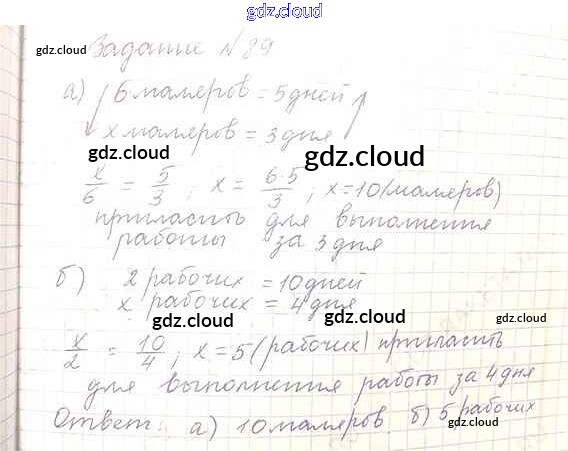 gdz.cloud
gdz.cloud gdz.cloud
Задание №89
а) 6 маляров = 5 дней gdz.cloud
х маляров = 3 дня
gdz.cloud gdz.cloud
х/6 = 5/3 ; х = 6·5/3 ; х = 10 (маляров)
пригласить для выполнения
работы за 3 дня
б) 2 рабочих = 10 дней
х рабочих = 4 дня
gdz.cloud
х/2 = 10/4 ; х = 5 (рабочих) пригласить
для выполнения работы за 4 дня
Ответ: а) 10 маляров. б) 5 рабочих
gdz.cloud gdz.cloud